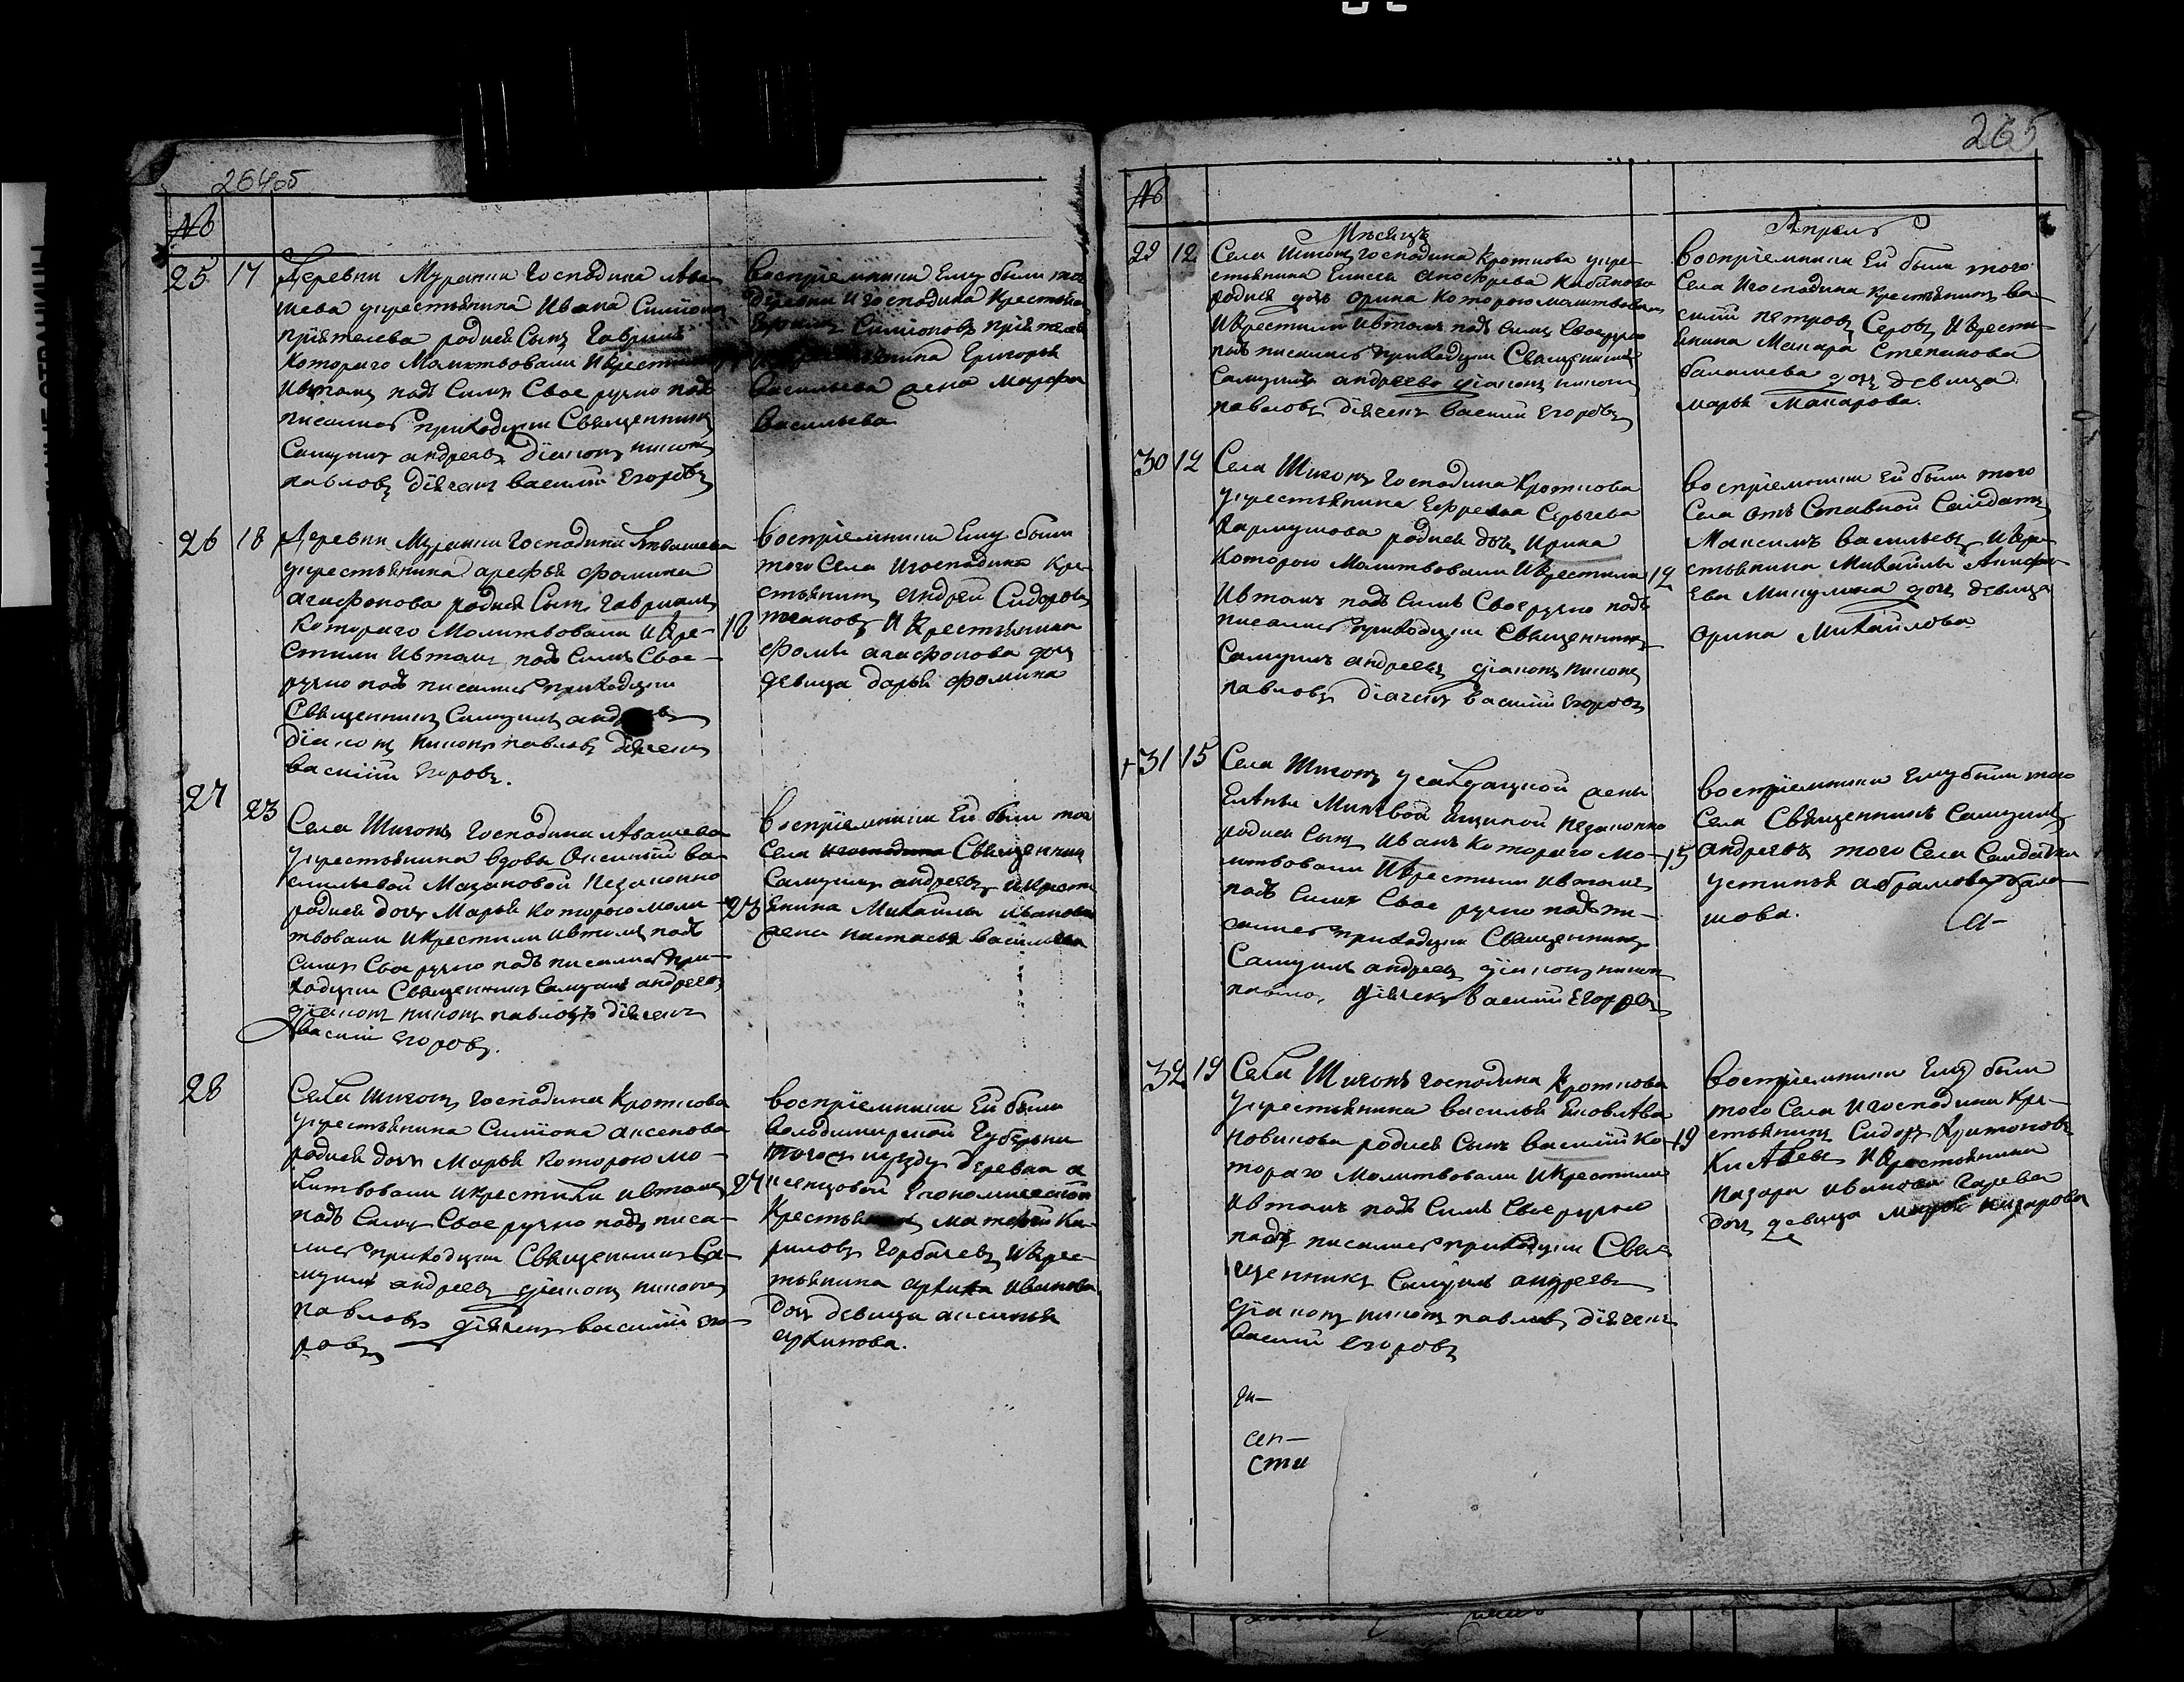 264об
№
25 17 Деревни Муранки Господина Ива
шева укрестьянина Ивана Симиона
приятелева родися Сынъ Гавриилъ
Котораго Молитвовали и крестили
ивтомъ подъ Симъ Свое ручно подъ
писались приходцкии Священникъ
Самуилъ андреевъ Дiаконъ никонъ
павловъ дiячекъ василiй Егоровъ
восприемники Ему были тое
деревни и господина Крестьянинъ
Симионовъ приятелевъ
Григорья
Васильева жена Марфа
Васильева
26 18 Деревни Муранки Господина Ивашева
укрестьянина арефья фомина
агафонова родися Сынъ гаврилъ
Котораго Молитвовали и кре-
стили ивтомъ подъ Симъ Свое-
ручно подъ писались приходцкии
Священникъ Самуилъ
дiаконъ никонъ павловъ дiячекъ
василiй Егоровъ.
восприемники Ему были
того Села и господина Кре-
стьянинъ андрей Сидоровъ
18 и Крестьянина
фомы агафонова дочь
девица дарья фомина
27 23
Села Шигонъ Господина Ивашева
укрестьянина вдовы Аксиньи ва-
сильевой Мазановой незаконно
родися дочь Марья которою моли-
твовали и крестили ивтомъ подъ
симъ Свое ручно подъ писались при-
ходцкии Священникъ Самуилъ андреевъ
дiаконъ никонъ павловъ дiячекъ
василiй егоровъ.
восприемники Ей были того
Села и господина Священникъ
Самуилъ андреевъ и крестья
23 янина Михаилы иванова
жена настасья васильева
28
Села шигонъ Господина Кроткова
укрестьянина Симиона аксенова
родися дочь Марья которою мо-
литвовали и крестили ивтомъ
подъ Симъ Свое ручно подъ писа-
лись приходцкии Священникъ Са-
муилъ андреевъ дiаконъ никонъ
павловъ дiячекъ василiй его-
ровъ
восприемники Ей были
володимирской Губернии
уезду деревни
27 Економической
Матфей Ки-
риловъ Горбачевъ и крес-
тьянина архипа иванова
дочь девица аксинья
архипова.
265
№
Месяцъ Апрель
29 12 Села Шигонъ Господина Кроткова укре-
стьянина Елисея Кабанова
родися дочь орина которою молитвовали
и крестили ивтомъ подъ симъ Своеручно
подъ писались приходцкии Священникъ
Самуилъ андреевъ дiаконъ никонъ
павловъ дiячекъ василiй Егоровъ
восприемники Ей были того
Села и господина крестьянинъ ва-
силiй петровъ Серовъ и кресть-
янина Макара Степанова
балашева дочь девица
марья Макарова.
30 12 Села Шигонъ Господина Кроткова
укрестьянина Ефрема Сергеева
родися дочь Ирина
которою Молитвовали и крестили
ивтомъ подъ симъ Своеручно подъ
писались приходцкии Священникъ
Самуилъ андреевъ дiаконъ никонъ
павловъ дiячекъ василiй егоровъ
восприемники Ей были того
Села отъ Ставной Салдатъ
Максимъ васильевъ и кре-
12 стьянина Михаилы
ева Микулина дочь девица
орина Михайлова
+31 15 Села Шигонъ у салдацкой жены
незаконно
родися Сынъ Иванъ Котораго мо-
литвовали и крестили ивтомъ
подъ Симъ Свое ручно подъ пи-
сались приходцкии Священникъ
Самуилъ андреевъ дiаконъ никонъ
павловъ дiячекъ василiй Егоровъ
восприемники Ему были того
Села Священникъ Самуилъ
15 андреевъ того Села Салдатка
устинья абрамова бала-
шова.
32 19 Села Шигонъ господина Кроткова
укрестьянина василья Яковлева
новикова родися Сынъ василiй ко-
тораго Молитвовали и крестили
ивтомъ подъ Симъ Своеручно
подъ писались приходцкии Свя-
щенникъ Самуилъ андреевъ
дiаконъ никонъ павловъ дiячекъ
василiй егоровъ
восприемники Ему были
того Села и господина Кре-
19 стьянинъ Сидоръ
и Крестьянина
назара иванова
дочь девица назарова
сти